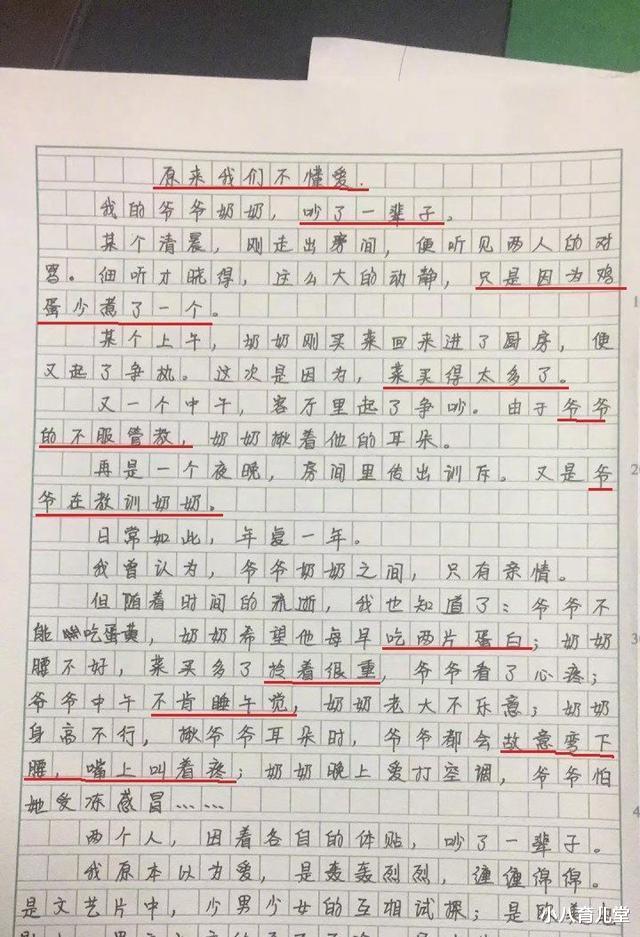 原来我们不懂爱.
我的爷爷奶奶，吵了一辈子。
某个清晨，刚走出房间，便听见两人的对
骂。细听才晓得，这么大的动静，只是因为鸡
蛋少煮了一个。
某个上午，奶奶刚买菜回来进了厨房，便
又起了争执。这次是因为，菜买得太多了。
又一个中午，客厅里起了争吵。由于爷爷
的不服管教，奶奶揪着他的耳朵。
再是一个夜晚，房间里传出训斥。又是爷
爷在教训奶奶。
日常如此，年复一年。
我曾认为，爷爷奶奶之间，只有亲情。
但随着时间的流逝，我也知道了：爷爷不
能吃蛋黄，奶奶希望他每早吃两片蛋白；奶奶
腰不好，菜买多了拎着很重，爷爷看了心疼；
爷爷中午不肯睡午觉，奶奶老大不乐意；奶奶
身高不行，揪爷爷耳朵时，爷爷都会故意弯下
腰，嘴上叫着疼；奶奶晚上爱打空调，爷爷怕
她受冻感冒……
两个人，因着各自的体贴，吵了一辈子。
我原本以为爱，是轰轰烈烈，缠缠绵绵。
是文艺片中，少男少女的互相试探；是欧美
小八育儿堂